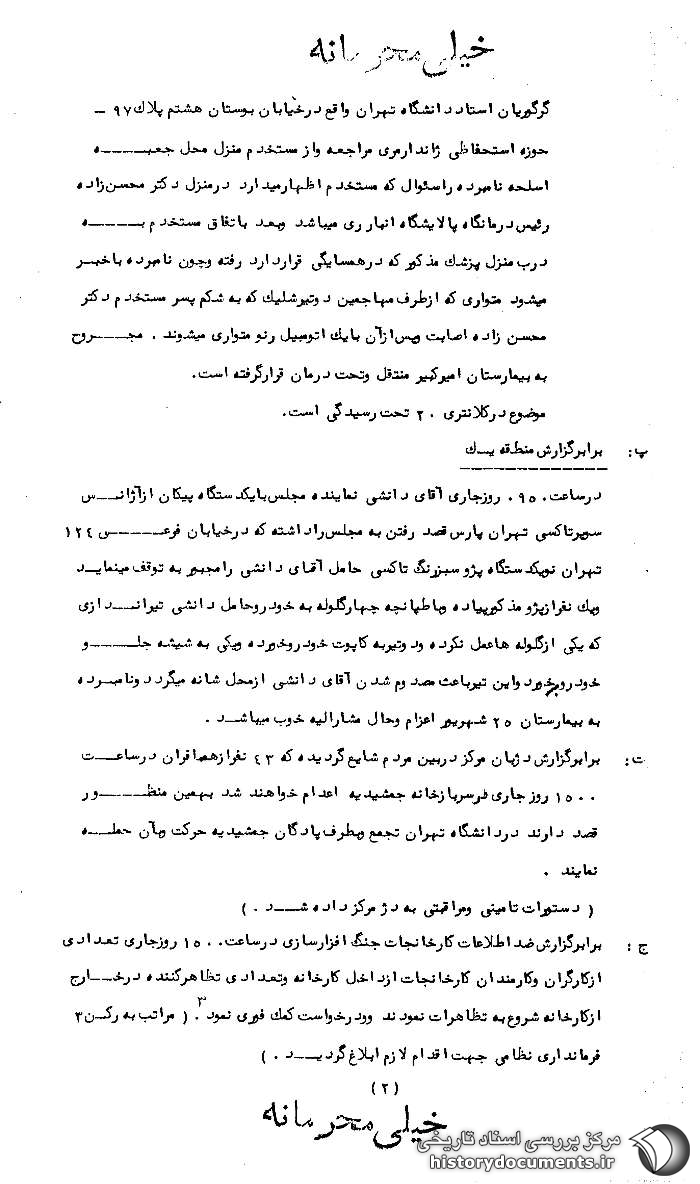 خیلی محرمانه
گرگویان استاد دانشگاه تهران واقع در خیابان بوستان هشتم پلاک ۹۷ –
حوزه استحفاظی ژاندارمری مراجعه و از مستخدم منزل محل جعبـــــه
اسلحه نامبرده را سئوال که مستخدم اظهار میدارد در منزل دکتر محسن زاده
رئیس درمانگاه پالایشگاه انباری میباشد وبعد باتفاق مستخدم بـــــه
درب منزل پزشک مذکور که در همسایگی قرار دارد رفته وچون نامبرده باخبـر
میشود متواری که از طرف مهاجمین دوتیر شلیک که به شکم پسر مستخدم دکتر
محسن زاده اصابت وپس از آن بایک اتومبیل رنو متواری میشوند . مجـــروح
به بیمارستان امیرکبیر منتقل وتحت درمان قرار گرفته است.
موضوع در کلانتری ۲۰ تحت رسیدگی است.
پ: برابر گزارش منطقه یــك
در ساعت ۰۹۵۰ روز جاری آقای دانشی نماینده مجلس بایکدستگاه پیکان از آژانــس
سوپر تاکسی تهران پارس قصد رفتن به مجلس را داشته که در خیابان فرعــــی ۱۲۴
تهران نو یکدستگاه پژو سبز رنگ تاکسی حامل آقای دانشی را مجبور به توقف مینمایـد
ویک نفر از پژو مذکور پیاده وباطپانچه چهار گلوله به خودرو حامل دانشی تیرانــدازی
که یکی از گلوله ها عمل نکرده ودوتیر به کاپوت خودرو خورده ویکی به شیشه جلــــو
خودرو میخورد واین تیر باعث مصدوم شدن آقای دانشی از محل شانه میگردد ونامبـرده
به بیمارستان ۲۵ شهریور اعزام وحال مشارالیه خوب میباشــد .
ت: برابر گزارش دژبان مرکز در بین مردم شایع گردیده که ۴۳ نفر از همافران در ساعــت
۱۵۰۰ روز جاری در سربازخانه جمشیدیه اعدام خواهند شد بهمین منظــــور
قصد دارند در دانشگاه تهران تجمع وبطرف پادگان جمشیدیه حرکت وبآن حملــه
نمایند .
( دستورات تامینی ومراقبتی به دژ مرکز داده شــــد . )
ج: برابر گزارش ضد اطلاعات کارخانجات جنگ افزارسازی در ساعت ۱۵۰۰ روز جاری تعدادی
از کارگران وکارمندان کارخانجات از داخل کارخانه وتعدادی تظاهر کننده در خــارج
از کارخانه شروع به تظاهرات نمودند ودرخواست کمک فوری نمود . ( مراتب به رکــن ۳
فرمانداری نظامی جهت اقدام لازم ابلاغ گردیـــد . )
(۲)
خیلی محرمانه
مرکز بررسی اسناد تاریخی
historydocuments.ir